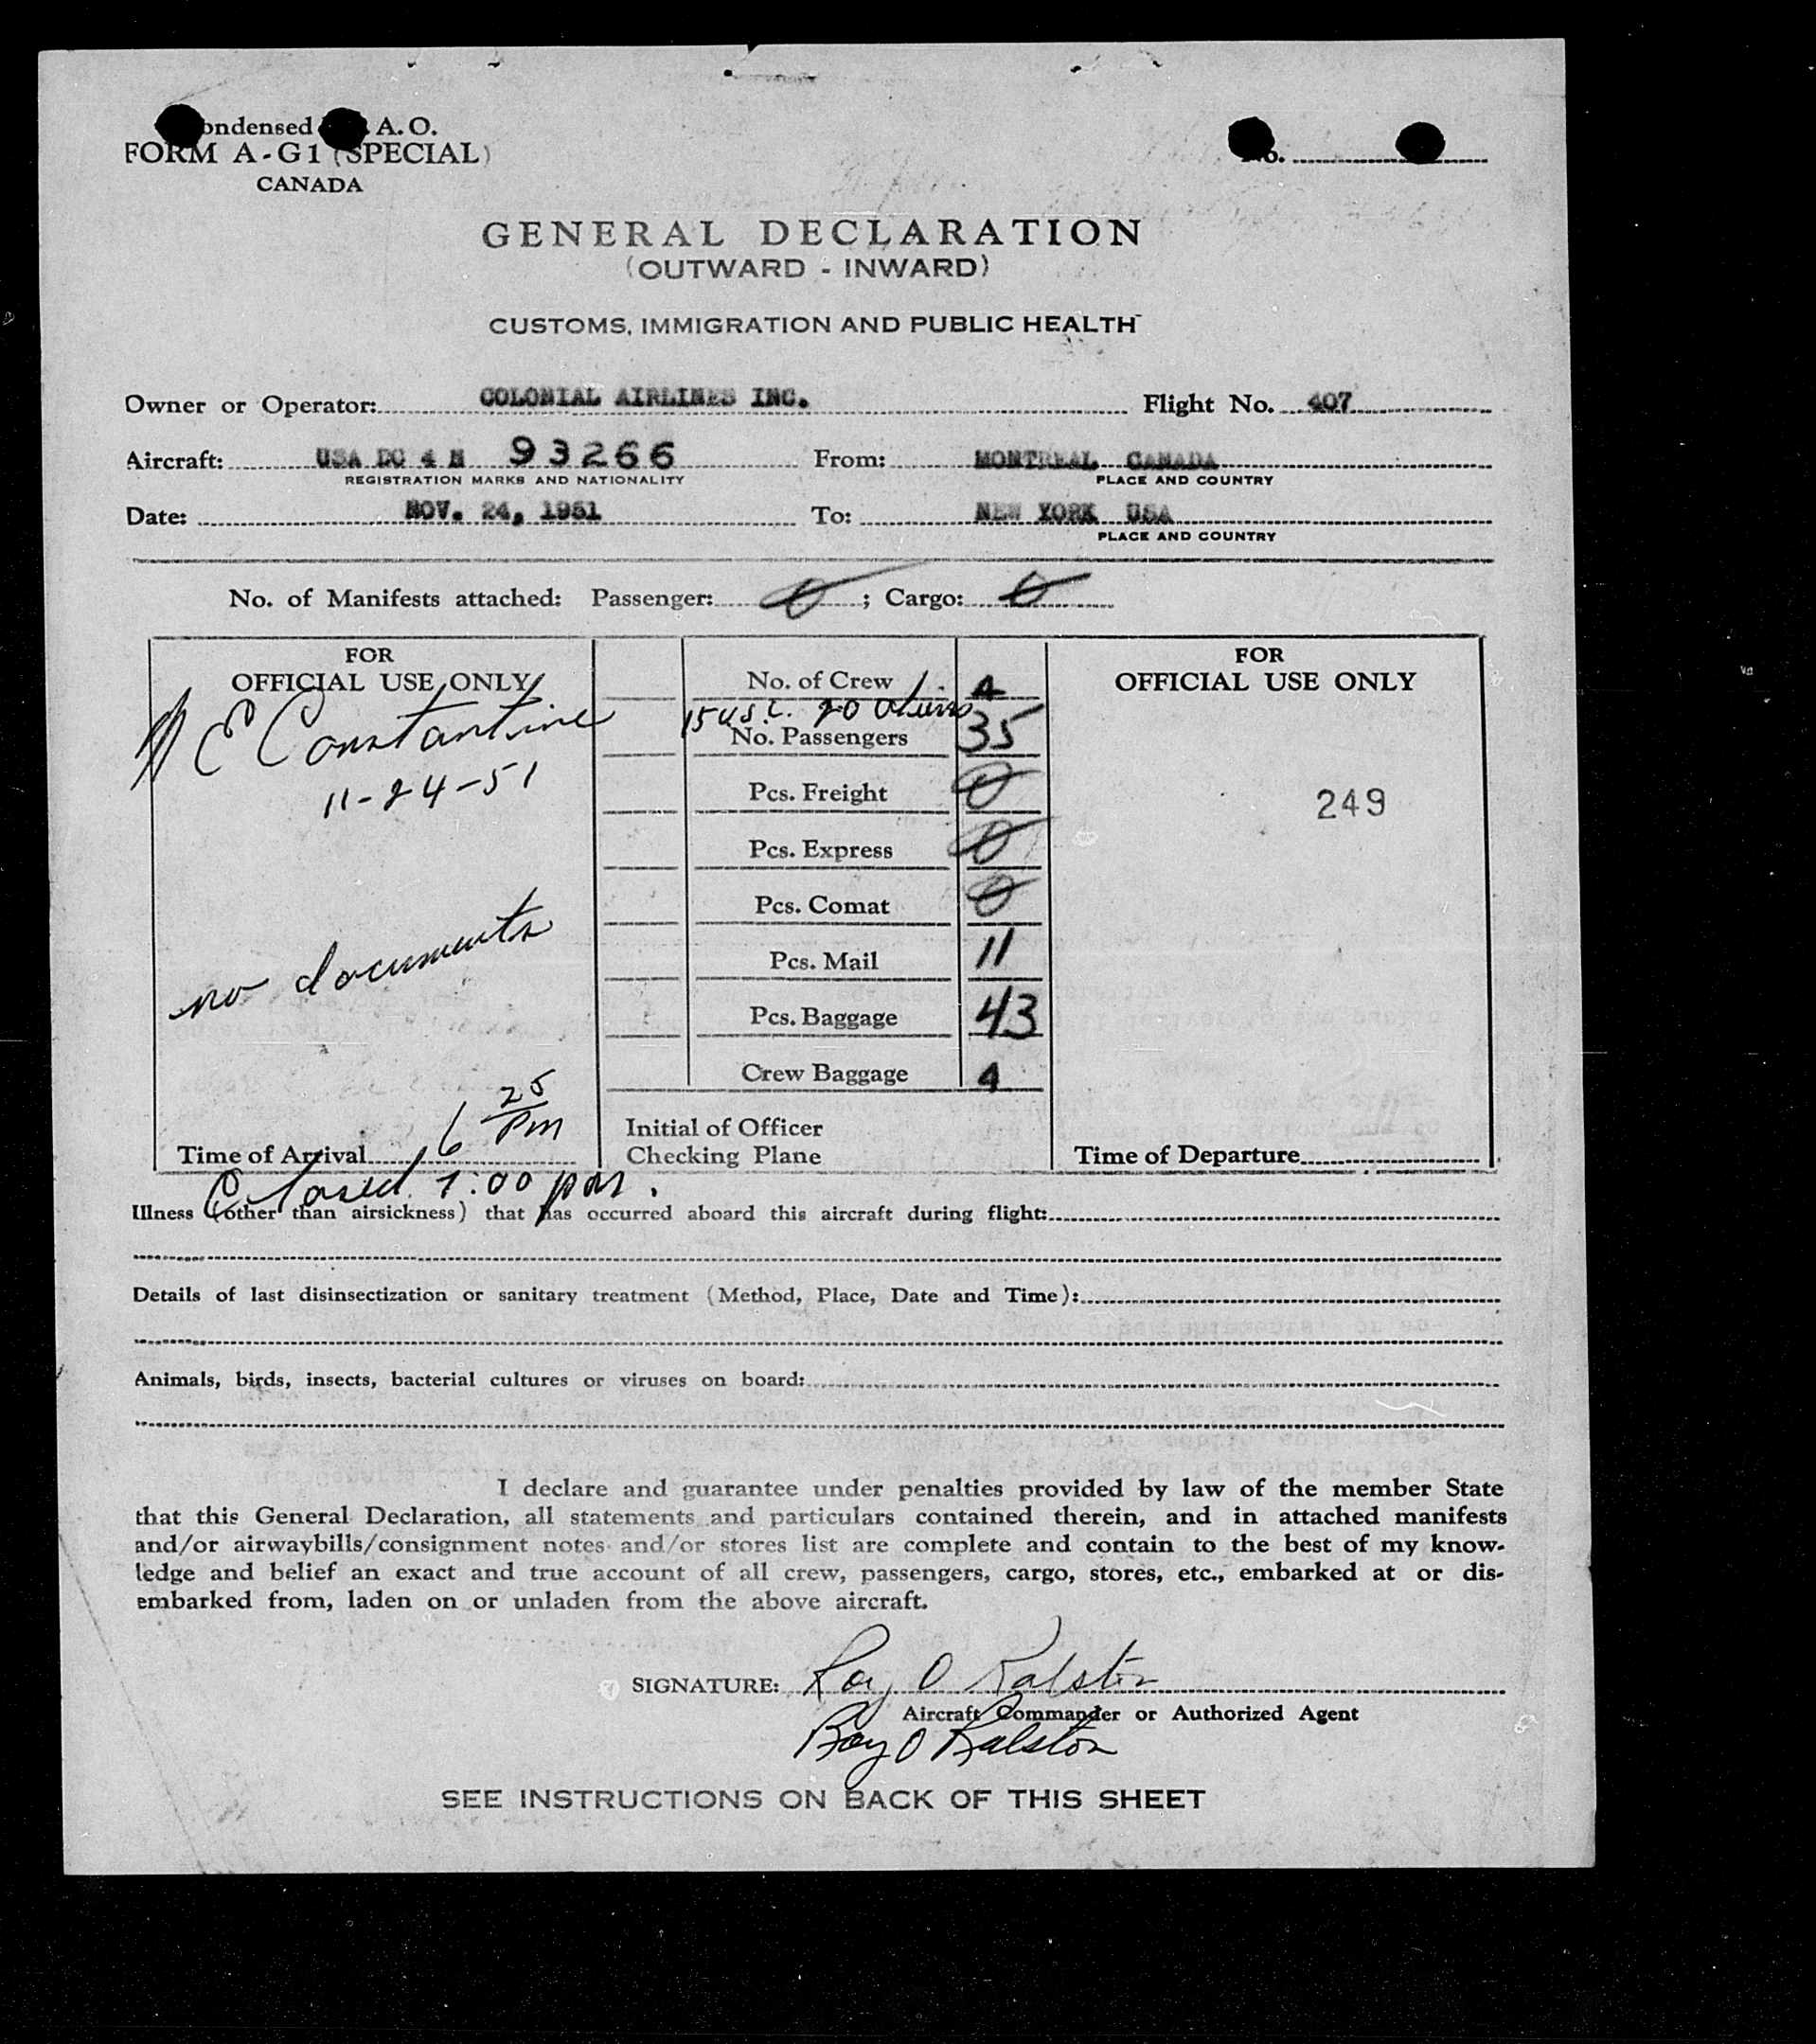 ondensed A. O.
FORM A-G1 (SPECIAL)
CANADA
o.
GENERAL DECLARATION
(OUTWARD - INWARD)
CUSTOMS, IMMIGRATION AND PUBLIC HEALTH
Owner or Operator: COLONIAL AIRLINES INC. Flight No. 407
Aircraft: USA DC 4 N 93266 From: MONTREAL CANADA
REGISTRATION MARKS AND NATIONALITY PLACE AND COUNTRY
Date: NOV. 24, 1951 To: NEW YORK USA
PLACE AND COUNTRY
No. of Manifests attached: Passenger: 0 ; Cargo: 0
FOR
OFFICIAL USE ONLY
E Constantine
11-24-51
no documents
Time of Arrival 6 25 PM
Closed 7:00 pm.
No. of Crew 4
15 U.S.C. 20 Aliens
No. Passengers 35
Pcs. Freight 0
Pcs. Express 0
Pcs. Comat 0
Pcs. Mail 11
Pcs. Baggage 43
Crew Baggage 4
Initial of Officer
Checking Plane
FOR
OFFICIAL USE ONLY
249
Time of Departure
Illness (other than airsickness) that has occurred aboard this aircraft during flight:
Details of last disinsectization or sanitary treatment (Method, Place, Date and Time):
Animals, birds, insects, bacterial cultures or viruses on board:
I declare and guarantee under penalties provided by law of the member State
that this General Declaration, all statements and particulars contained therein, and in attached manifests
and/or airwaybills/consignment notes and/or stores list are complete and contain to the best of my know-
ledge and belief an exact and true account of all crew, passengers, cargo, stores, etc., embarked at or dis-
embarked from, laden on or unladen from the above aircraft.
SIGNATURE: Roy O Ralston
Aircraft Commander or Authorized Agent
Roy O Ralston
SEE INSTRUCTIONS ON BACK OF THIS SHEET